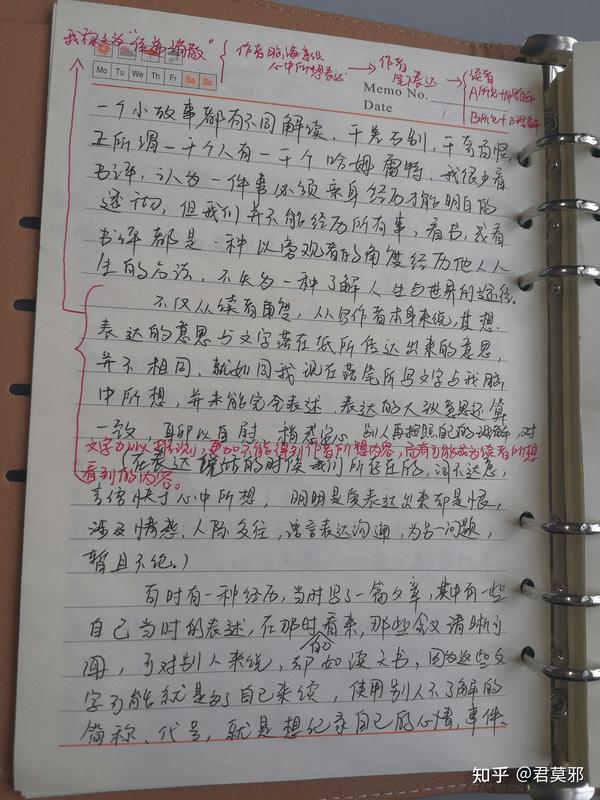 我称之为"传递 消散"
作者脑海意识
心中所想表达
→ 作者
笔下表达
→ 读者
A所见+A理解
B所见+B理解
Mo Tu We Th Fr Sa Su
Memo No.
Date /
一个小故事都有不同解读，千差万别，千奇百怪，
正所谓一千个人有一千个哈姆雷特。我很少看
书评，认为一件事必须亲身经历才能明白的
透彻，但我们并不能经历所有事，看书，或看
书评都是一种以旁观者的角度经历他人人
生的方法，不失为一种了解人生与世界的途径。
不仅从读者角度，从写作者本身来说，其想
表达的意思与文字落在纸所传达出来的意思，
并不相同，就如同我现在落笔所写文字与我脑
中所想，并未能完全表述，表达的大致意思还算
一致，聊以自慰，稍感安心。别人再按照自己的理解，对
文字加以想象，更加不能得到作者所想内容，而有可能成为读者所想
看到的内容。
在表达 的时候我们所经在的，词不达意，
言语快于心中所想，明明是爱表达出来却是恨，
涉及情感、人际交往，语言表达沟通，为另一问题，
暂且不论。）
有时有一种经历，当时写了一篇文章，其中有一些
自己当时的表述，在那时看来，那些含义清晰可
自己
闻，可对别人来说，却如读天书，因为这些文
字可能就是为了自己来读，使用别人不了解的
简称、代号，就是想纪录自己的心情，事件、
知乎 @君莫邪